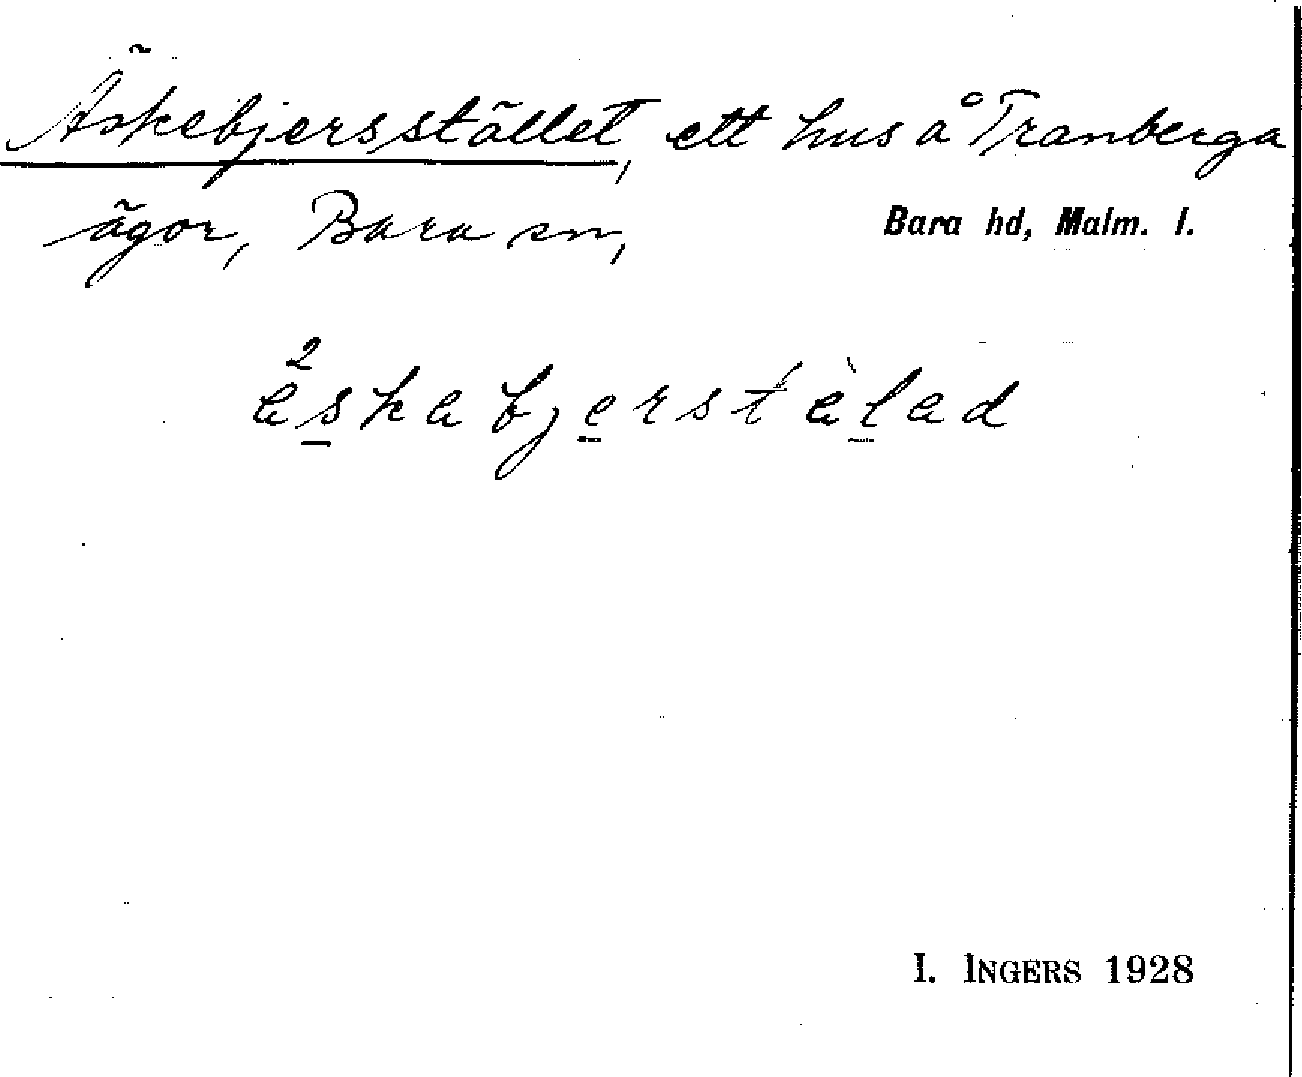 Äskebjersstället, ett hus å Tranberga
ägor, Bara sn, Bara hd, Malm. l.
²äskabjerstàlad
I. INGERS 1928